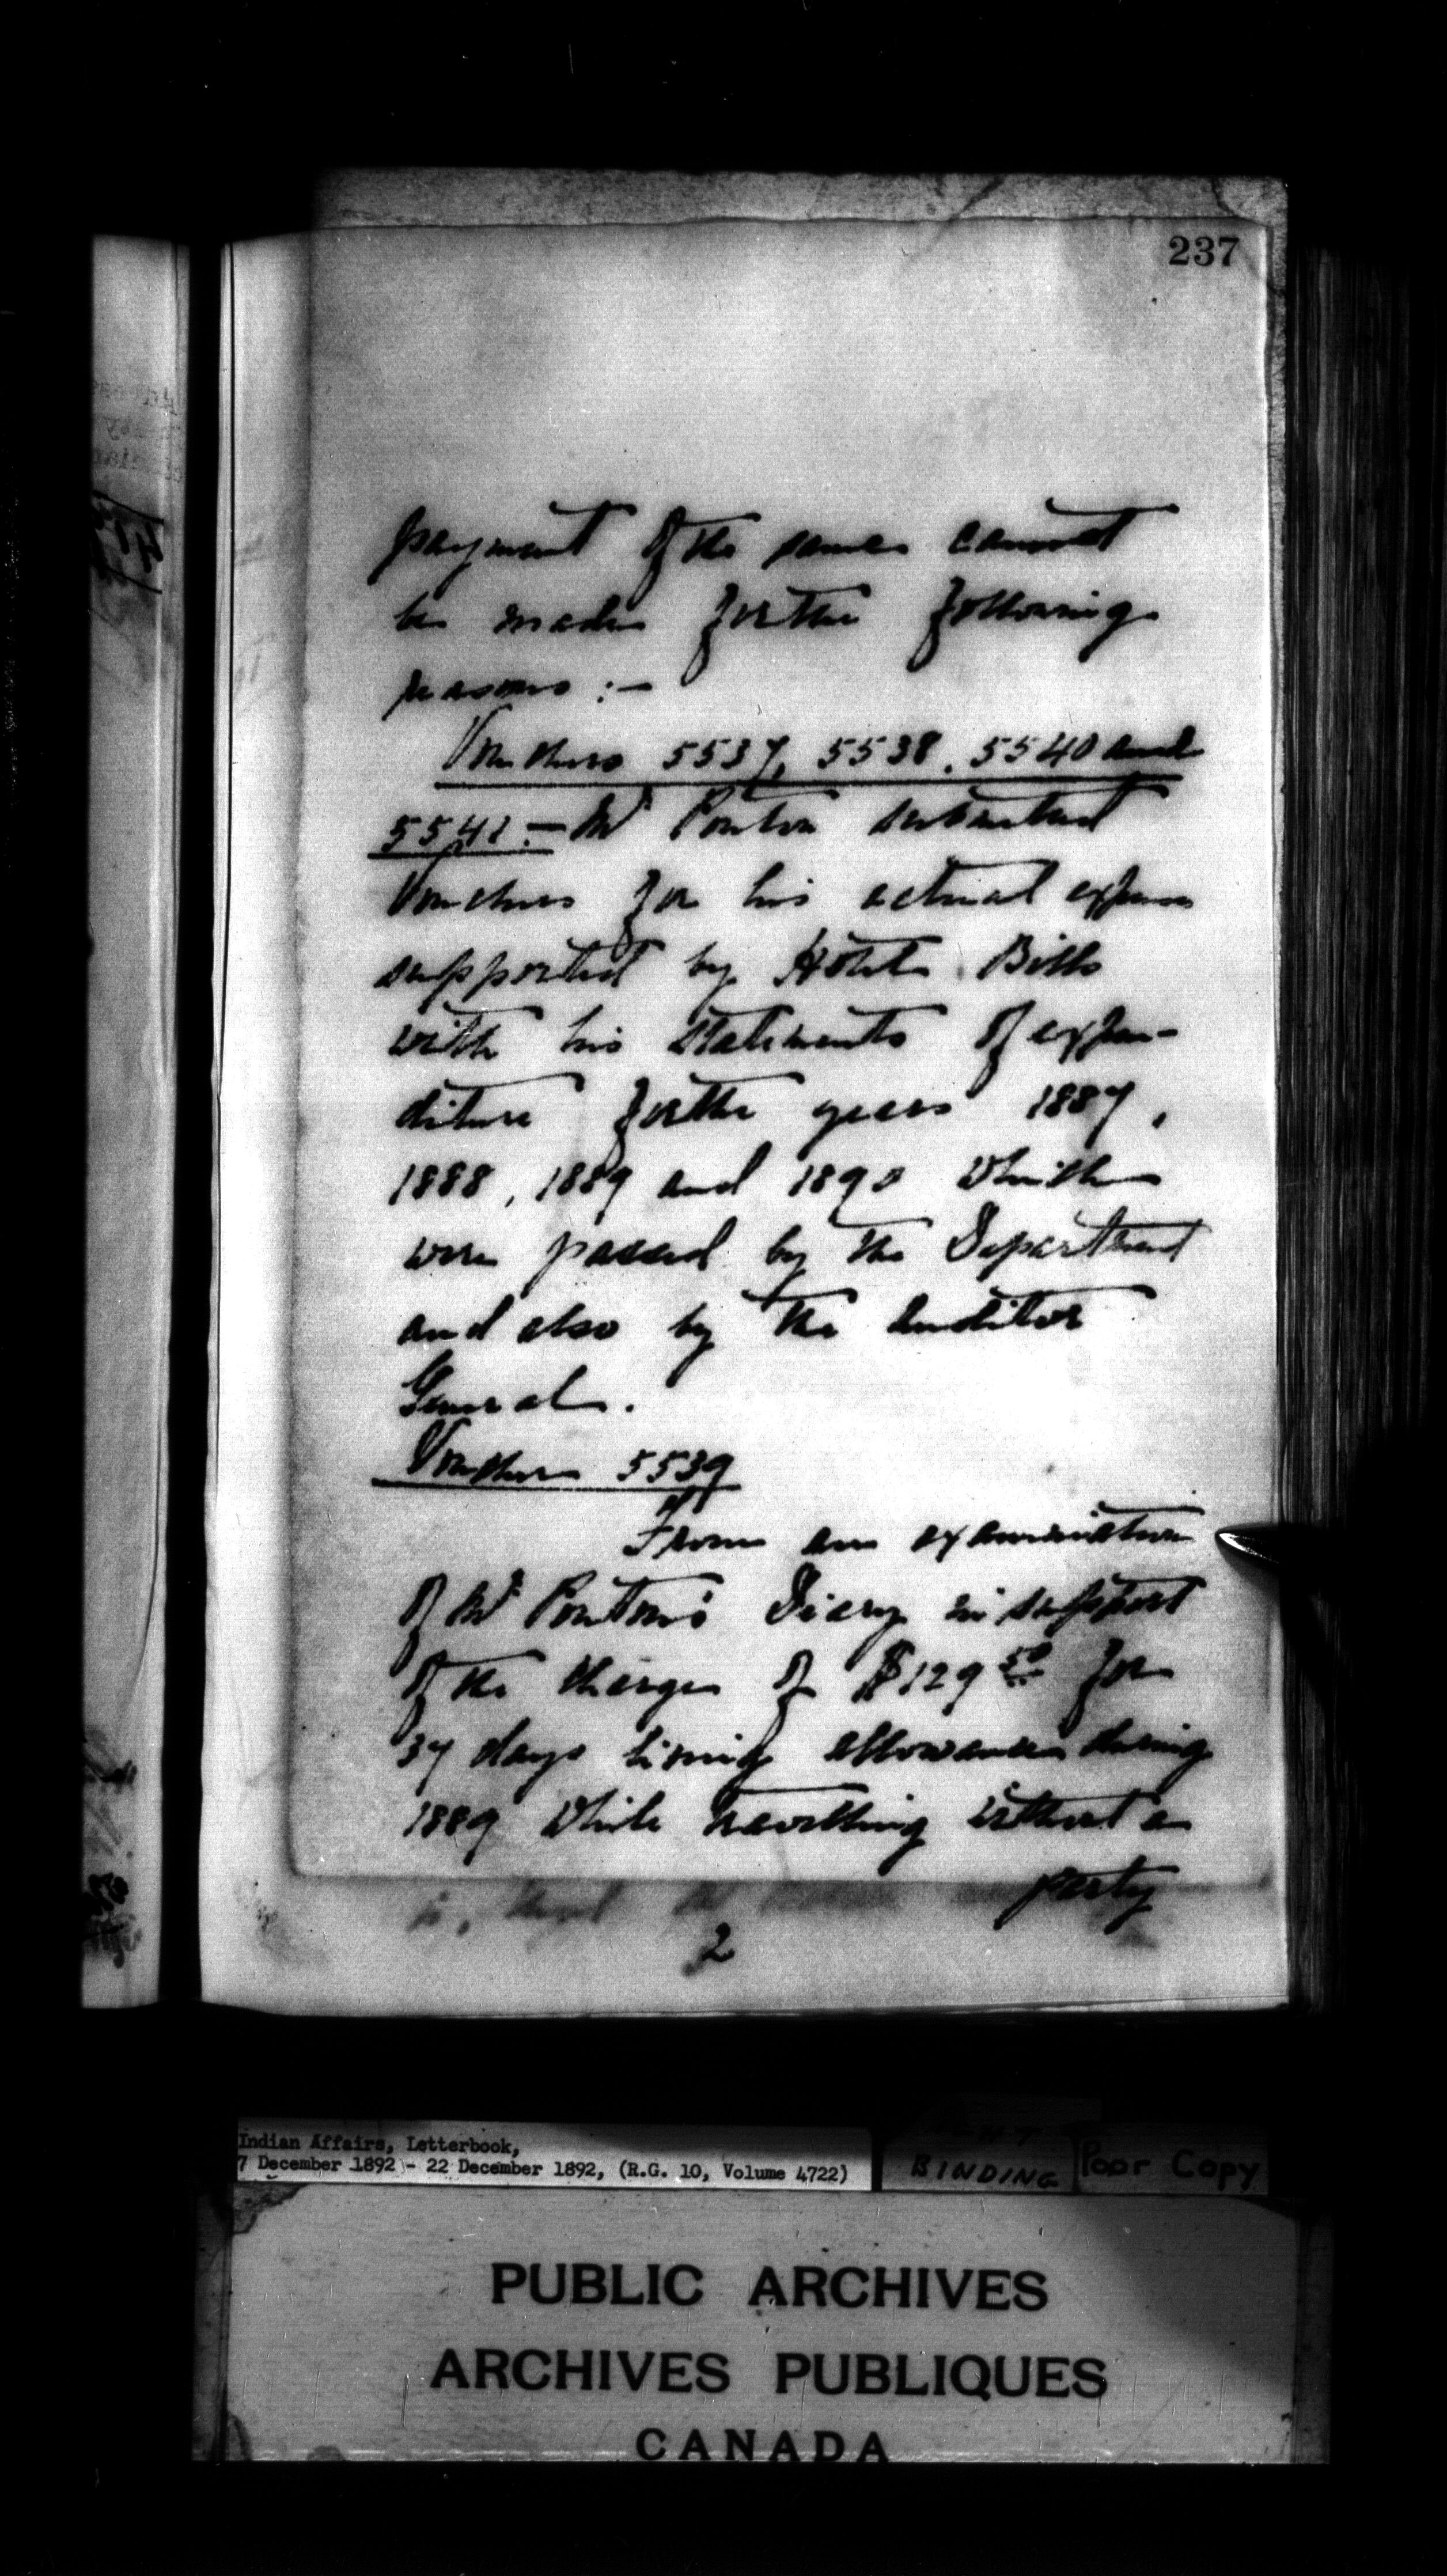 237
payment of the same cannot
be made for the following
reasons :-
Vouchers 5537, 5538, 5540 and
5541 :- Mr Ponton submitted
Vouchers for his actual expenses
supported by Hotel Bills
with his statements of expen-
diture for the years 1887,
1888, 1889 and 1890 which
were passed by the Department
and also by the Auditor
General.
Voucher 5539
From an examination
of Mr Ponton's Diary in support
of the charge of $129 50 for
37 days living allowance during
1889 while travelling without a
party
2
Indian Affairs, Letterbook,
7 December 1892 - 22 December 1892, (R.G. 10, Volume 4722)
BINDING
Poor Copy
PUBLIC ARCHIVES
ARCHIVES PUBLIQUES
CANADA